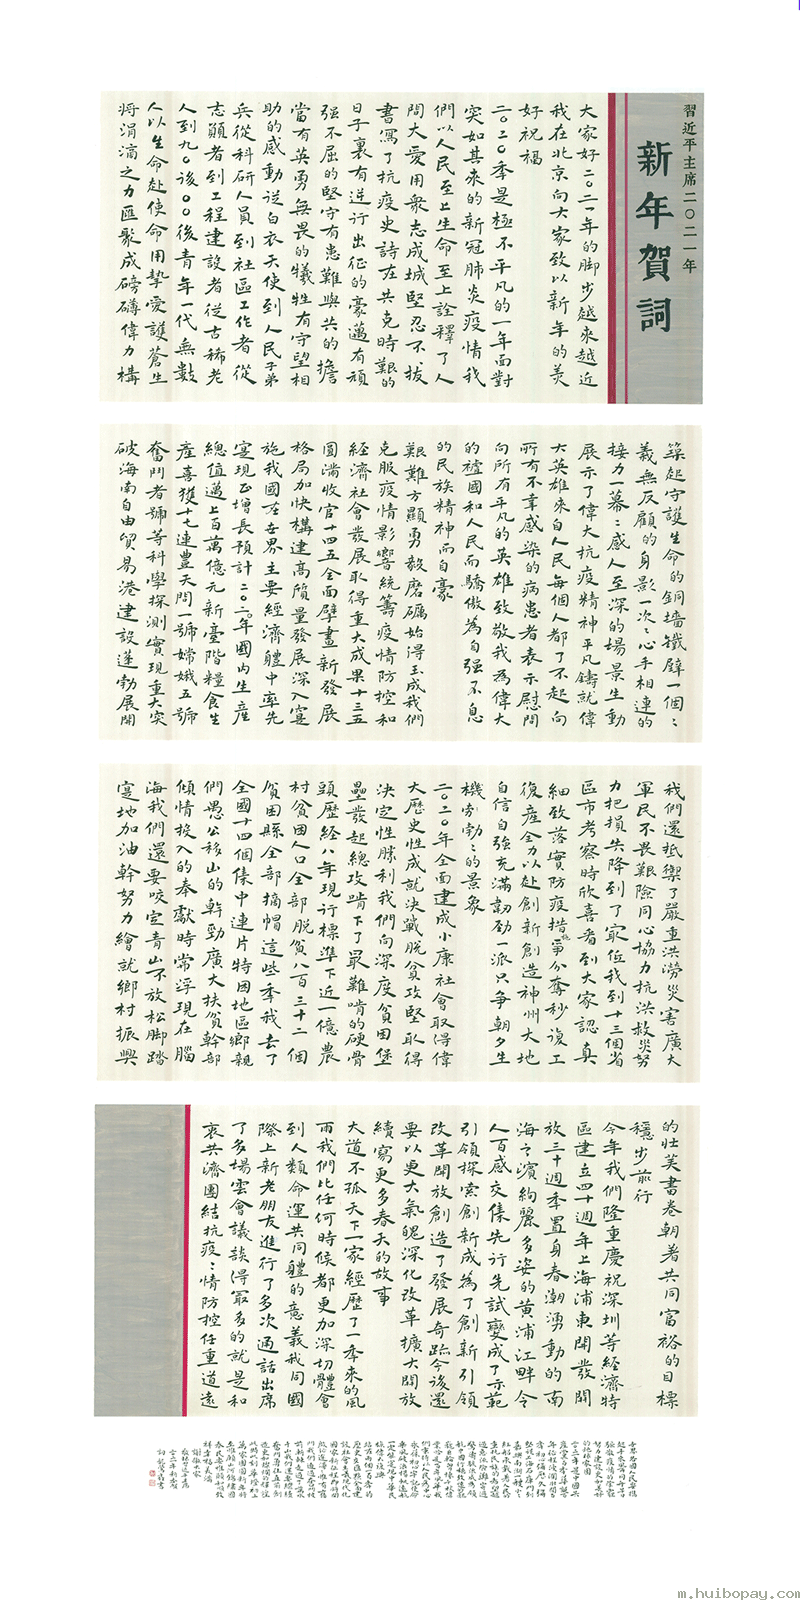 習近平主席二〇二一年
新年賀詞
大家好二〇二一年的脚步越來越近
我在北京向大家致以新年的美
好祝福
二〇二〇年是極不平凡的一年面對
突如其來的新冠肺炎疫情我
們以人民至上生命至上詮釋了人
間大愛用衆志成城堅忍不拔
書寫了抗疫史詩在共克時艱的
日子裏有逆行出征的豪邁有頑
强不屈的堅守有患難與共的擔
當有英勇無畏的犧牲有守望相
助的感動從白衣天使到人民子弟
兵從科研人員到社區工作者從
志願者到工程建設者從古稀老
人到九〇後〇〇後青年一代無數
人以生命赴使命用摯愛護蒼生
將涓滴之力匯聚成磅礴偉力構
築起守護生命的銅墻鐵壁一個〻
義無反顧的身影一次〻心手相連的
接力一幕〻感人至深的場景生動
展示了偉大抗疫精神平凡鑄就偉
大英雄來自人民每個人都了不起向
所有不幸感染的病患者表示慰問
向所有平凡的英雄致敬我為偉大
的祖國和人民而驕傲為自强不息
的民族精神而自豪
艱難方顯勇毅磨礪始得玉成我們
克服疫情影響統籌疫情防控和
經濟社會發展取得重大成果十三五
圓滿收官十四五全面擘畫新發展
格局加快構建高質量發展深入實
施我國在世界主要經濟體中率先
實現正增長預計二〇二〇年國内生産
總值邁上百萬億元新臺階糧食生
産喜獲十七連豐天問一號嫦娥五號
奮鬥者號等科學探測實現重大突
破海南自由貿易港建設蓬勃展開
我們還抵禦了嚴重洪澇災害廣大
軍民不畏艱險同心協力抗洪救災努
力把損失降到了最低我到十三個省
區市考察時欣喜看到大家認真
細致落實防疫措施爭分奪秒復工
復產全力以赴創新創造神州大地
自信自强充滿韌勁一派只爭朝夕生
機勃勃〻的景象
二〇二〇年全面建成小康社會取得偉
大歷史性成就決戰脱貧攻堅取得
決定性勝利我們向深度貧困堡
壘發起總攻啃下了最難啃的硬骨
頭歷經八年現行標準下近一億農
村貧困人口全部脱貧八百三十二個
貧困縣全部摘帽這些年我去了
全國十四個集中連片特困地區鄉親
們愚公移山的幹勁廣大扶貧幹部
傾情投入的奉獻時常浮現在腦
海我們還要咬定青山不放松脚踏
實地加油幹努力繪就鄉村振興
的壯美畫卷朝著共同富裕的目標
穩步前行
今年我們隆重慶祝深圳等經濟特
區建立四十週年上海浦東開發開
放三十週年置身春潮湧動的南
海之濱絢麗多姿的黄浦江畔令
人百感交集先行先試變成了示範
引領探索創新成為了創新引領
改革開放創造了發展奇跡今後還
要以更大氣魄深化改革擴大開放
續寫更多春天的故事
大道不孤天下一家經歷了一年來的風
雨我們比任何時候都更加深切體會
到人類命運共同體的意義我同國
際上新老朋友進行了多次通話出席
了多場雲會議談得最多的就是和
衷共濟團結抗疫〻情防控任重道遠
m.huibopay.com